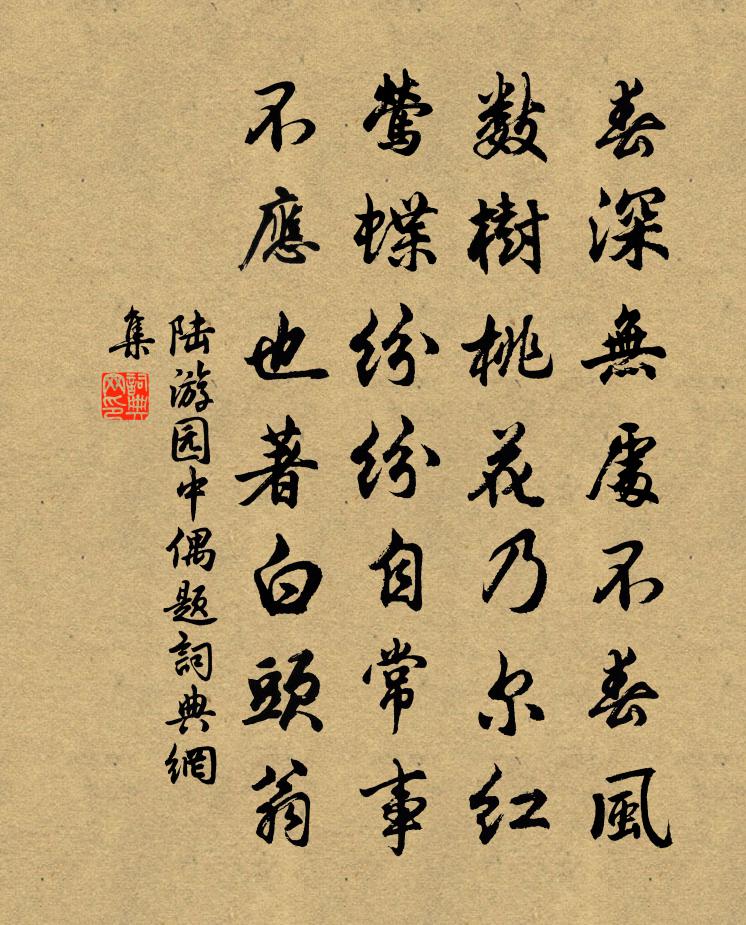 春深無處不春風
數樹桃花乃尔紅
鶯蝶紛紛自常事
不應也著白頭翁
陆游园中偶題詞典網
集
詞典網印